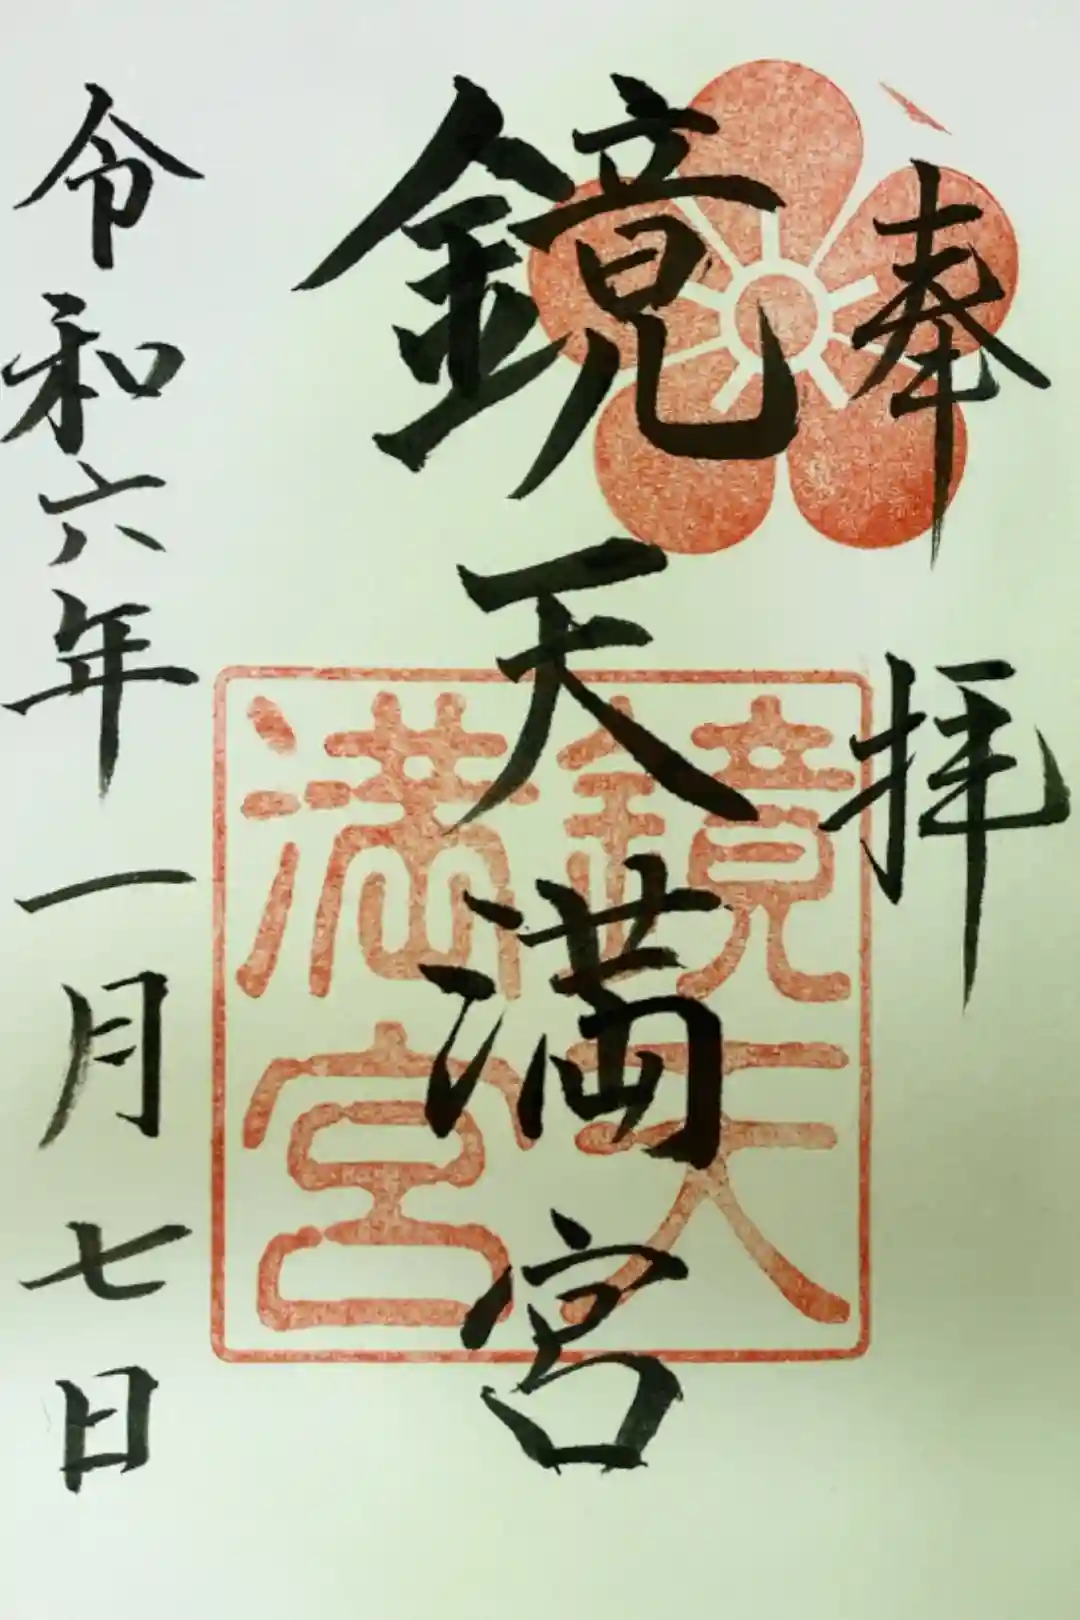 奉拝
鏡天満宮
鏡天
満宮
令和六年一月七日